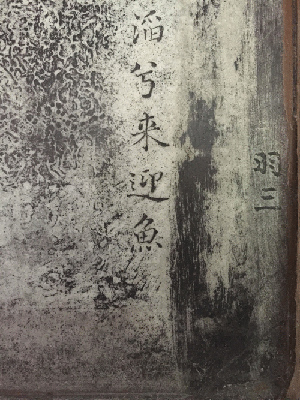 羽三
滔兮来迎魚